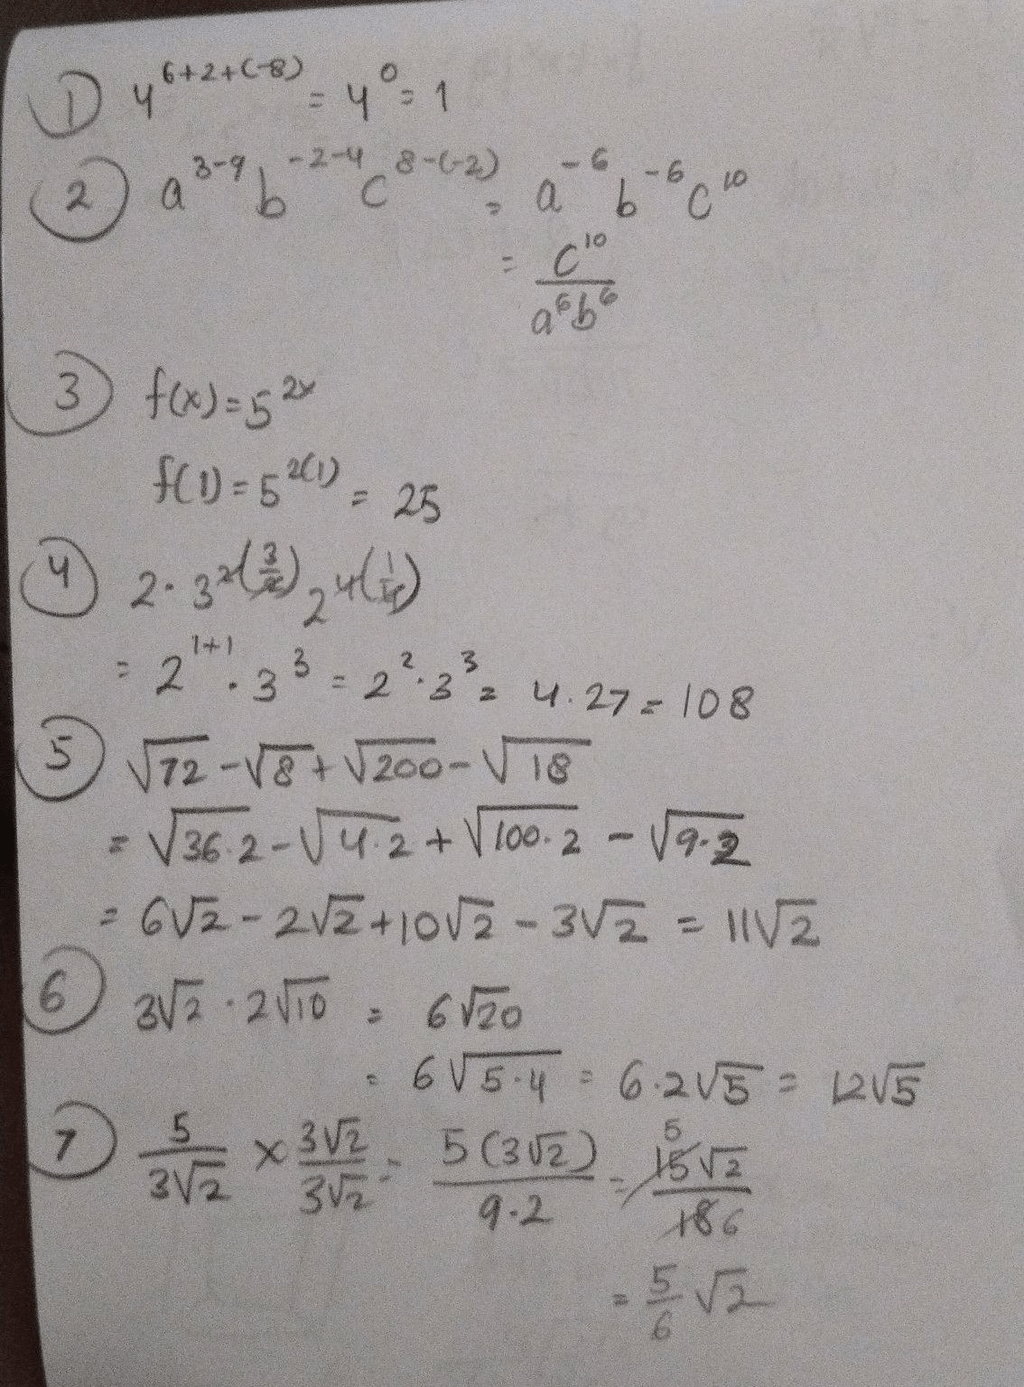 ① 4^{6+2+(-8)} = 4^0 = 1
② a^{3-9} b^{-2-4} c^{8-(-2)} = a^{-6} b^{-6} c^{10}
= \frac{c^{10}}{a^6 b^6}
③ f(x)=5^{2x}
f(1)=5^{2(1)} = 25
④ 2 · 3^{2(\frac{3}{2})} 2^{4(\frac{1}{4})}
= 2^{1+1} · 3^3 = 2^2 · 3^3 = 4.27 = 108
⑤ √72 - √8 + √200 - √18
= √36.2 - √4.2 + √100.2 - √9.2
= 6√2 - 2√2 + 10√2 - 3√2 = 11√2
⑥ 3√2 · 2√10 = 6√20
= 6√5·4 = 6·2√5 = 12√5
⑦ \frac{5}{3√2} × \frac{3√2}{3√2} = \frac{5(3√2)}{9·2} = \frac{15√2}{18} 5 6
= \frac{5}{6} √2